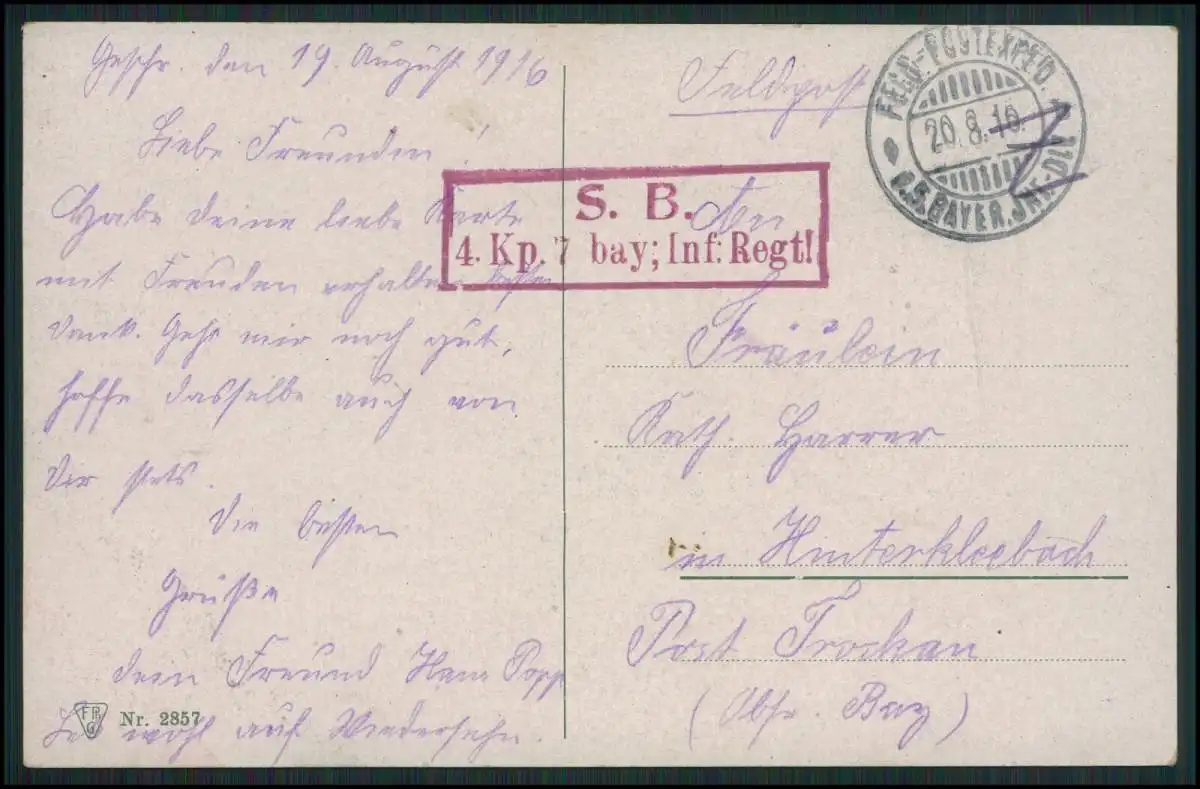 Geschr. den 19. August 1916
Liebe Freundin!
Habe deine liebe Karte
mit Freuden erhalten besten
Dank. Gehs mir noch gut,
hoffe dasselbe auch von
Dir stets.
Die besten
Grüße
dein Freund Hans Popp
Leb wohl auf Wiedersehn.
FPG
Nr. 2857
Feldpost
FELD-POSTEXPED.
20.8.16.
D.5.BAYER.INF.-DIV.
S. B.
4. Kp. 7 bay; Inf: Regt!
An
Fräulein
Kath. Harrer
in Hinterkleebach
Post Trockau
(Obfr. Bay)